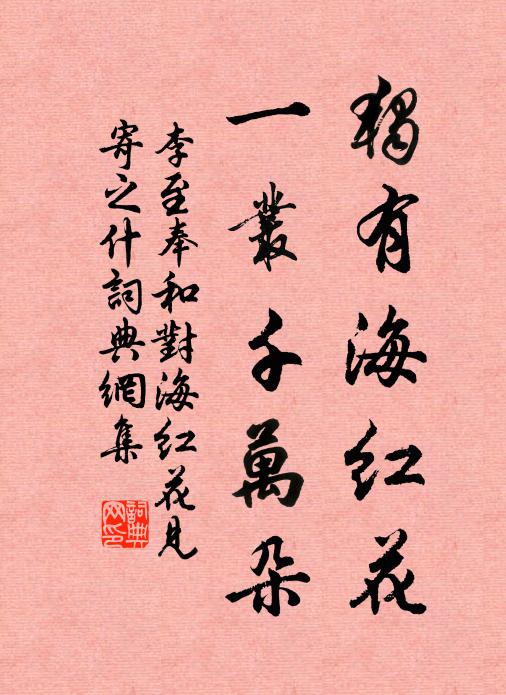 獨有海红花
一叢千萬朵
李至奉和對海红花見
寄之什詞典網集
詞典
网印